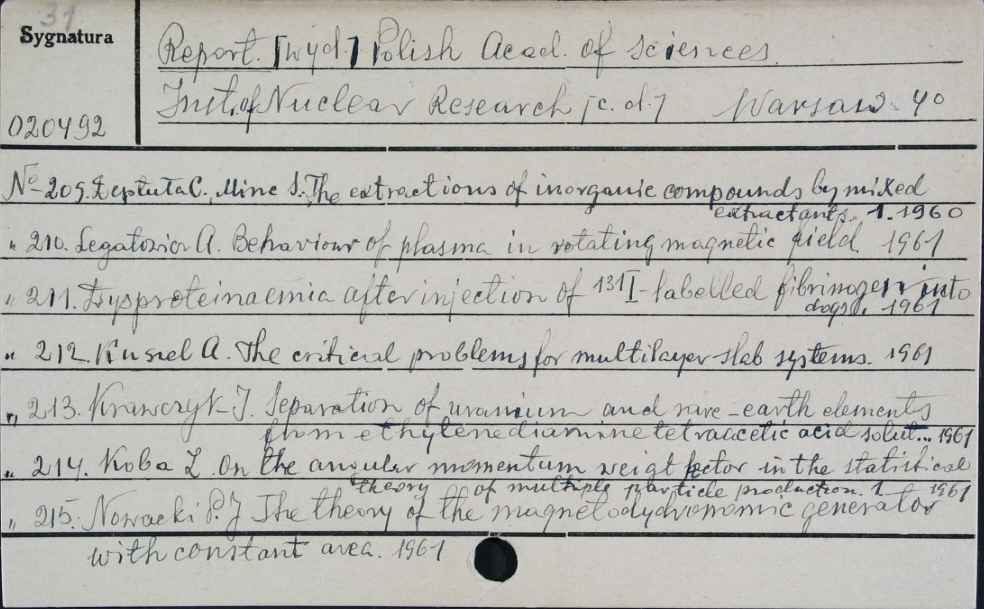 31
Sygnatura
Report. [wyd.] Polish Acad. of Sciences.
020492
Inst. of Nuclear Research [c.d.] Warsaw. 40
No 209. Deptuła C. Minc S. The extractions of inorganic compounds by mixed
extractants. 1. 1960
" 210. Legatowicz A. Behaviour of plasma in rotating magnetic field 1961
" 211. Dysproteinaemia after injection of 131I-labelled fibrinogen into
dogs. 1961
" 212. Kusnel A. The critical problems for multilayer slab systems. 1961
" 213. Krawczyk J. Separation of uranium and rare-earth elements
from ethylenediaminetetraacetic acid solut... 1961
" 214. Koba Z. On the angular momentum weigt factor in the statistical
theory of multiple particle production. 1 1961
" 215. Nowacki P.J The theory of the magnetodydronomic generator
with constant area. 1961